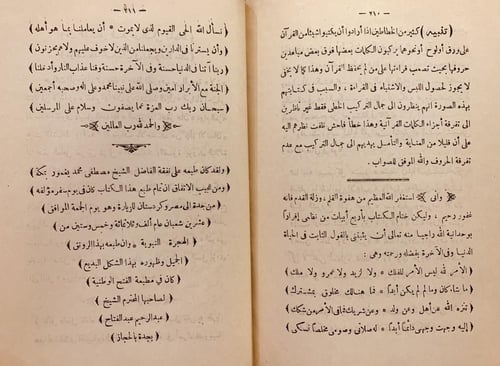 — ٢١٠ —
( تنبيه ) كثير من الخطاطين اذا أوادوا أن يكتبوا شيئا من القرآن
على ورق أو لوح أو نحوهما يركبون الكلمات بعضها فوق بعض مباعدين
حروفها بحيث تصعب قراءتها على من لم يحفظ القرآن وهذا كما لا يخفى
لا يجوز لحصول اللبس والاشتباه فى القراءة ، والسبب فى كتابتهم
بهذه الصورة انهم ينظرون الى جمال التركيب الخطى فقط غير ناظرين
الى تفرقة أجزاء الكلمات القرآنية وهذا خطأ فاحش نلفت نظرهم اليه
على أن قليلا من العناية والتأمل يهديهم الى جمال التركيب مع عدم
تفرقة الحروف والله الموفق للصواب .
( وانى ) استغفر الله العظيم من هفوة القلم وزلة القدم فانه
غفور رحيم * وليكن ختام الكتاب بأربع أبيات من نظمى إفرادا
بوحدانية الله راجيا منه تعالى أن يثبتنى بالقول الثابت فى الحياة
الدنيا وفى الآخرة بفضله ورحمته وهى :
( الأمر لله ليس الأمر للفلك * ولا لزيد ولا عمرو ولا ملك )
( ما شاء كان وما لم لم يكن أبدًا * فما هنالك مخلوق بمشترك )
( تنزه الله عن أهل وعن ولد * وعن شريك فما فى الأمر من شكك )
( إليه وجهت وجهى دائمًا أبدًا * له صلاتى وصومى مخلصًا نسكى )
— ٢١١ —
( نسأل الله الحى القيوم لذى لا يموت * أن يعاملنا بما هو أهله )
( وأن يسترنا فى الدارين ويجعلنا من الذين لا خوف عليهم ولا هم يحزنون )
( ربنا آتنا فى الدنيا حسنة وفى الآخرة حسنة وقنا عذاب النار وأدخلنا )
( الجنة مع الأبرار آمين وصلى الله على نبينا محمد وعلى آله وصحبه أجمعين )
( سبحان ربك رب العزة عما يصفون وسلام على المرسلين )
والحمد لله رب العالمين
( ولقد كان طبعه على نفقة الفاضل الشيخ مصطفى محمد يغمور بمكة )
( ومن عجيب الاتفاق ان تمام طبع هذا الكتاب كان فى يوم سفر مؤلفه )
( من جدة الى مصر وكردستان للزيارة وهو يوم الجمعة الموافق )
( عشرين شعبان عام ألف وثلاثمائة وخمس وستين من )
( الهجرة النبوية * وان طبعه بهذا الرونق )
( الجميل وظهوره بهذا الشكل البديع )
( كان فى مطبعة الفتح الوطنية )
( لصاحبها المحترم الشيخ )
( عبد الرحيم عبد الفتاح )
( بجدة بالحجاز )